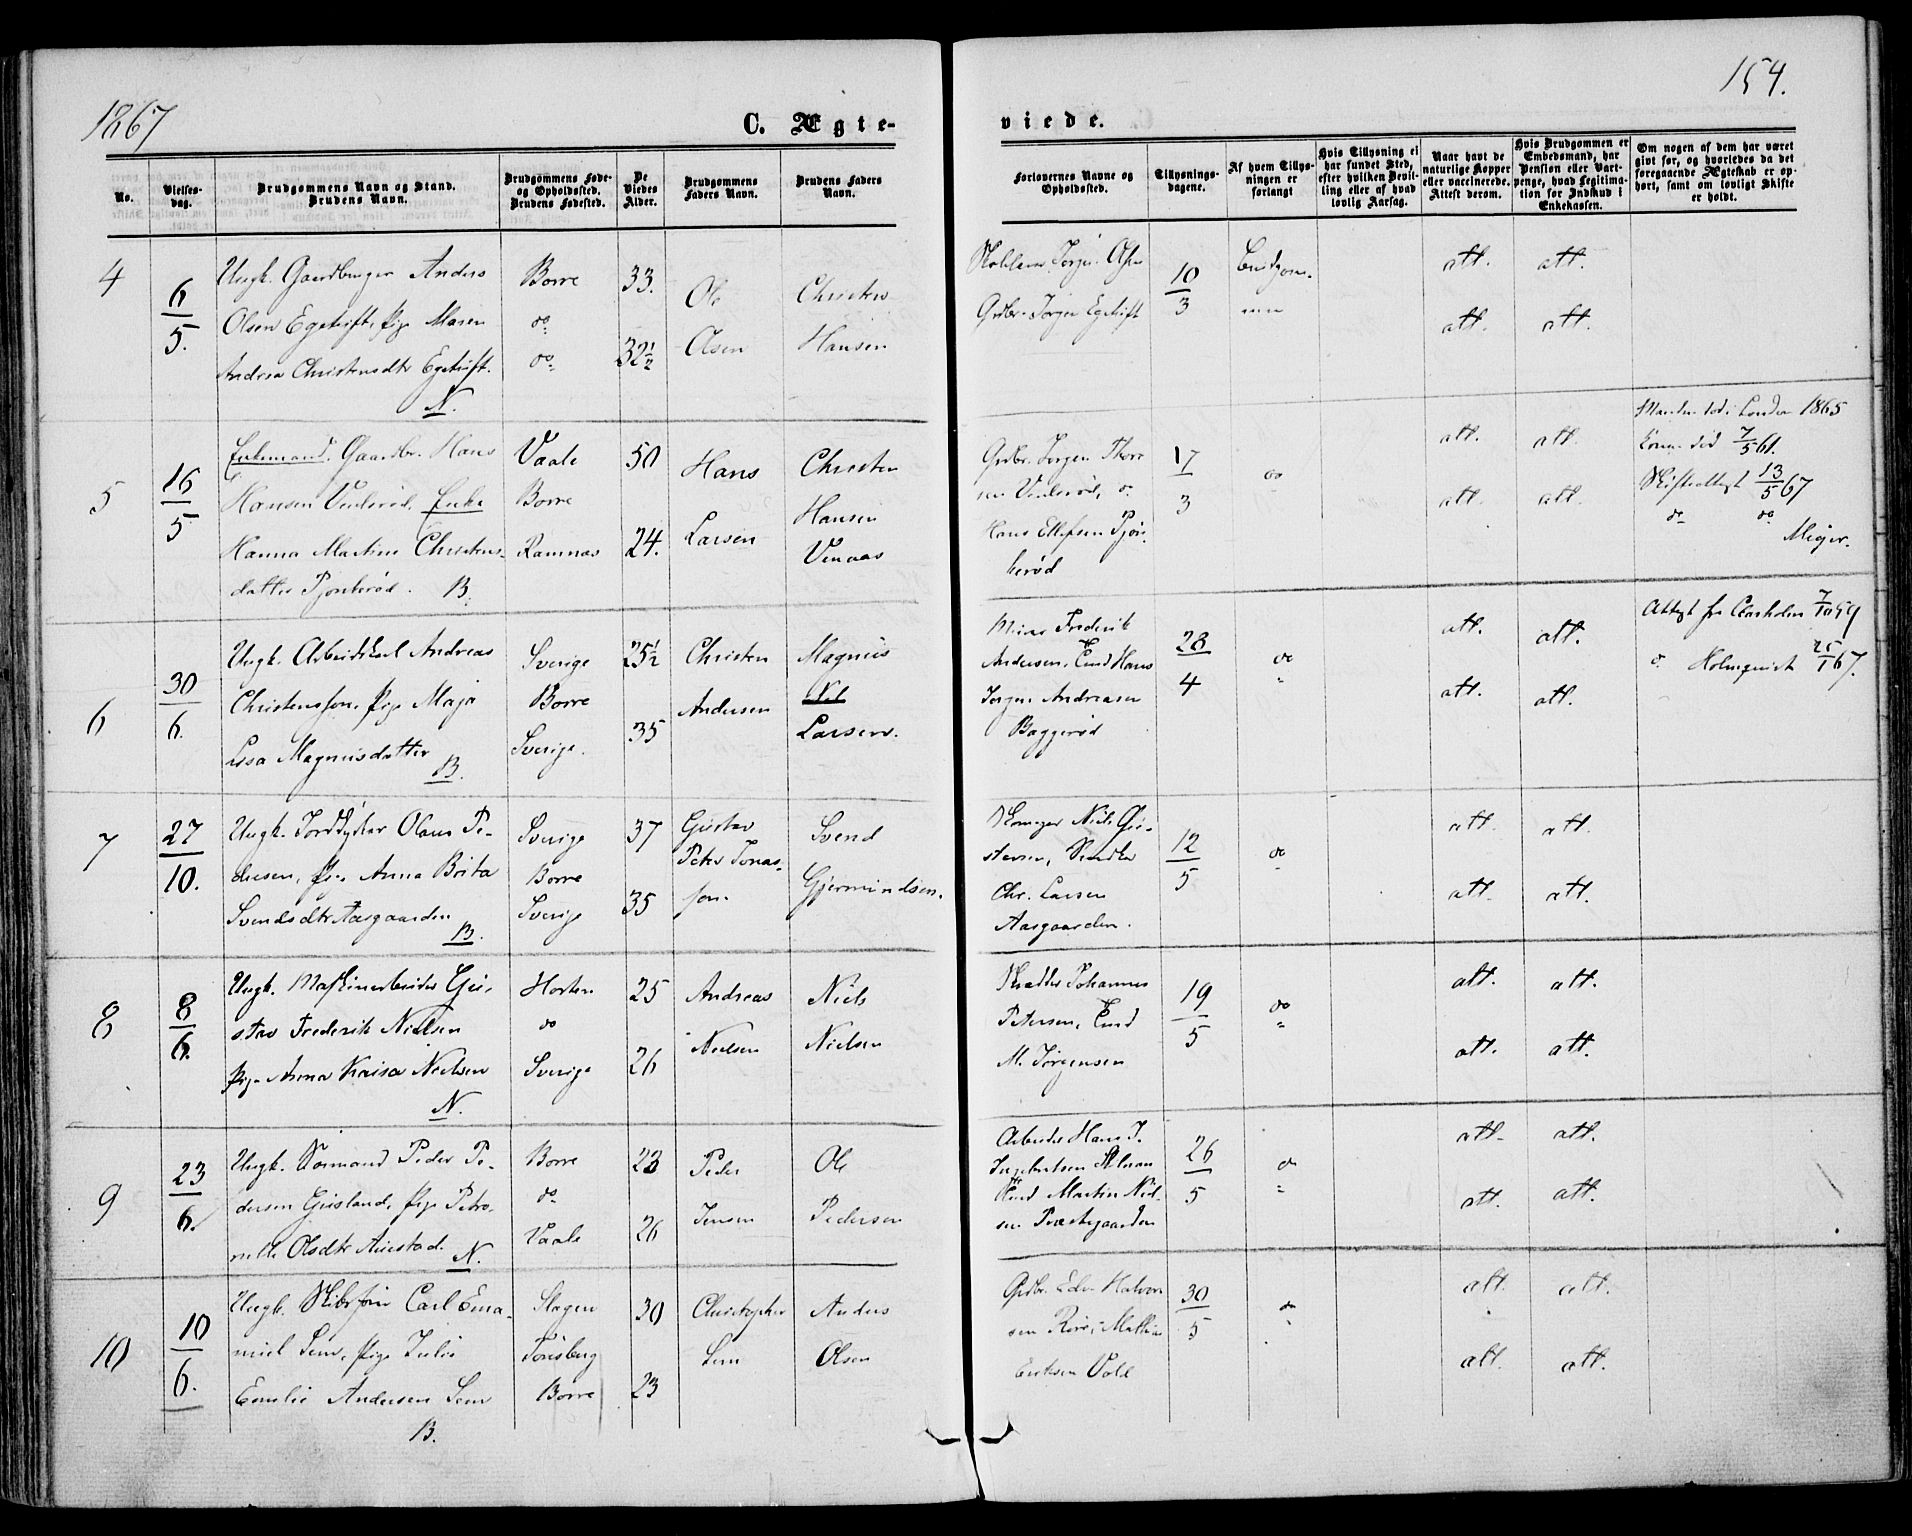 1867
154.
C. Ægte-
viede.
No.
Vielses-
dag.
Brudgommens Navn og Stand.
Brudens Navn.
Brudgommens Føde-
og Opholdssted.
Brudens Fødested.
De
Viedes
Alder.
Brudgommens
Faders Navn.
Brudens Faders
Navn.
Forlovernes Navne og
Opholdssted.
Tillysnings-
dagene.
Af hvem Tillys-
ningen er
forlangt
Hvis Tillysning ei
har fundet Sted,
efter hvilken Bevil-
ling eller af hvad
lovlig Aarsag.
Naar havt de
naturlige Kopper
eller vaccinerede.
Attest derom.
Hvis Brudgommen er
Embedsmand, har
Pension eller Vart-
penge, hvad Legitima-
tion for Indskud i
Enkekassen.
Om nogen af dem har været
givt før, og hvorledes da det
foregaaende Ægteskab er op-
hørt, samt om lovligt Skifte
er holdt.
4
6/5.
Ungk. Gaardbruger Anders
Olsen Egetrift, Pige Maren
Andrea Christensdtr Egetrift.
N.
Borre
do
do
33.
32½
Ole
Olsen
Christen
Hansen
Jørgen Olsen
Grdbr. Jørgen Egetrift
10/3
Brudgom-
men
att. att.
att. att.
5
16/5
Enkemand. Gaardbr. Hans
Hansen Verkerød, Enke
Hanna Martine Christens-
datter Pjonkerød. B.
Vaale
Borre
Ramnæs
50
24.
Hans
Larsen
Christen
Hansen
Venaas
Grdbr. Jørgen Thore
sen
Hans Ellefsen Pjon-
kerød
17/3
do
att. att.
att. att.
Manden død i London 1865
Kone død 7/5 61.
Skifteattest 13/5 67
do do
Meyer.
6
30/6.
Ungk. Arbeidskarl Andreas
Christensson, Pige Maja
Lisa Magnusdatter
B.
Sverige
Borre
Sverige.
25½
35
Christen
Andersen
Magnus
Larsen.
Frederik
Andersen, Hans
Jørgen Andreasen
Baggerød
28/4
do
att. att.
att. att.
Attest fra 7/10 59
do Holmqvist 25/1 67.
7
27/10.
Ungk. Jorddyrker Olaus Pe-
dersen, Pige Anna Brita
Svendsdtr Aasgaarden
B.
Sverige
Borre
Sverige
37
35
Gustav
Peter Jonas-
son.
Svend
Gjermundsen.
Niels Gu-
stavsen,
Chr. Larsen
Aasgaarden.
12/5
do
att. att.
att. att.
8
8/6.
Ungk. Maskinarbeider Gu-
stav Frederik Nielsen
Pige Anna Kaisa Nielsen
N.
Horten
do
Sverige
25
26
Andreas
Nielsen
Niels
Nielsen
Skrædder Johannes
Petersen,
M. Jørgensen
19/5
do
att. att.
att. att.
9
23/6.
Ungk. Sømand Peder Pe-
dersen Grisland, Pige Petro-
nelle Olsdtr Auestad. N.
Borre
do
Vaale
23
26
Peder
Jensen
Ole
Pedersen
Arbeider Hans J.
Ingebretsen
Martin Niel-
sen Præstegaarden
26/5
do
att. att.
att. att.
10
10/6.
Ungk. Skibsfører Carl Ema-
nuel Sem, Pige Julie
Emilie Andersen Sem
B.
Slagen
Tønsberg
Borre
30
23
Christopher
Sem
Anders
Olsen
Grdbr. Edv. Halvor-
sen Røre, Mathias
Eriksen Vold
30/5
do
att. att.
att. att.